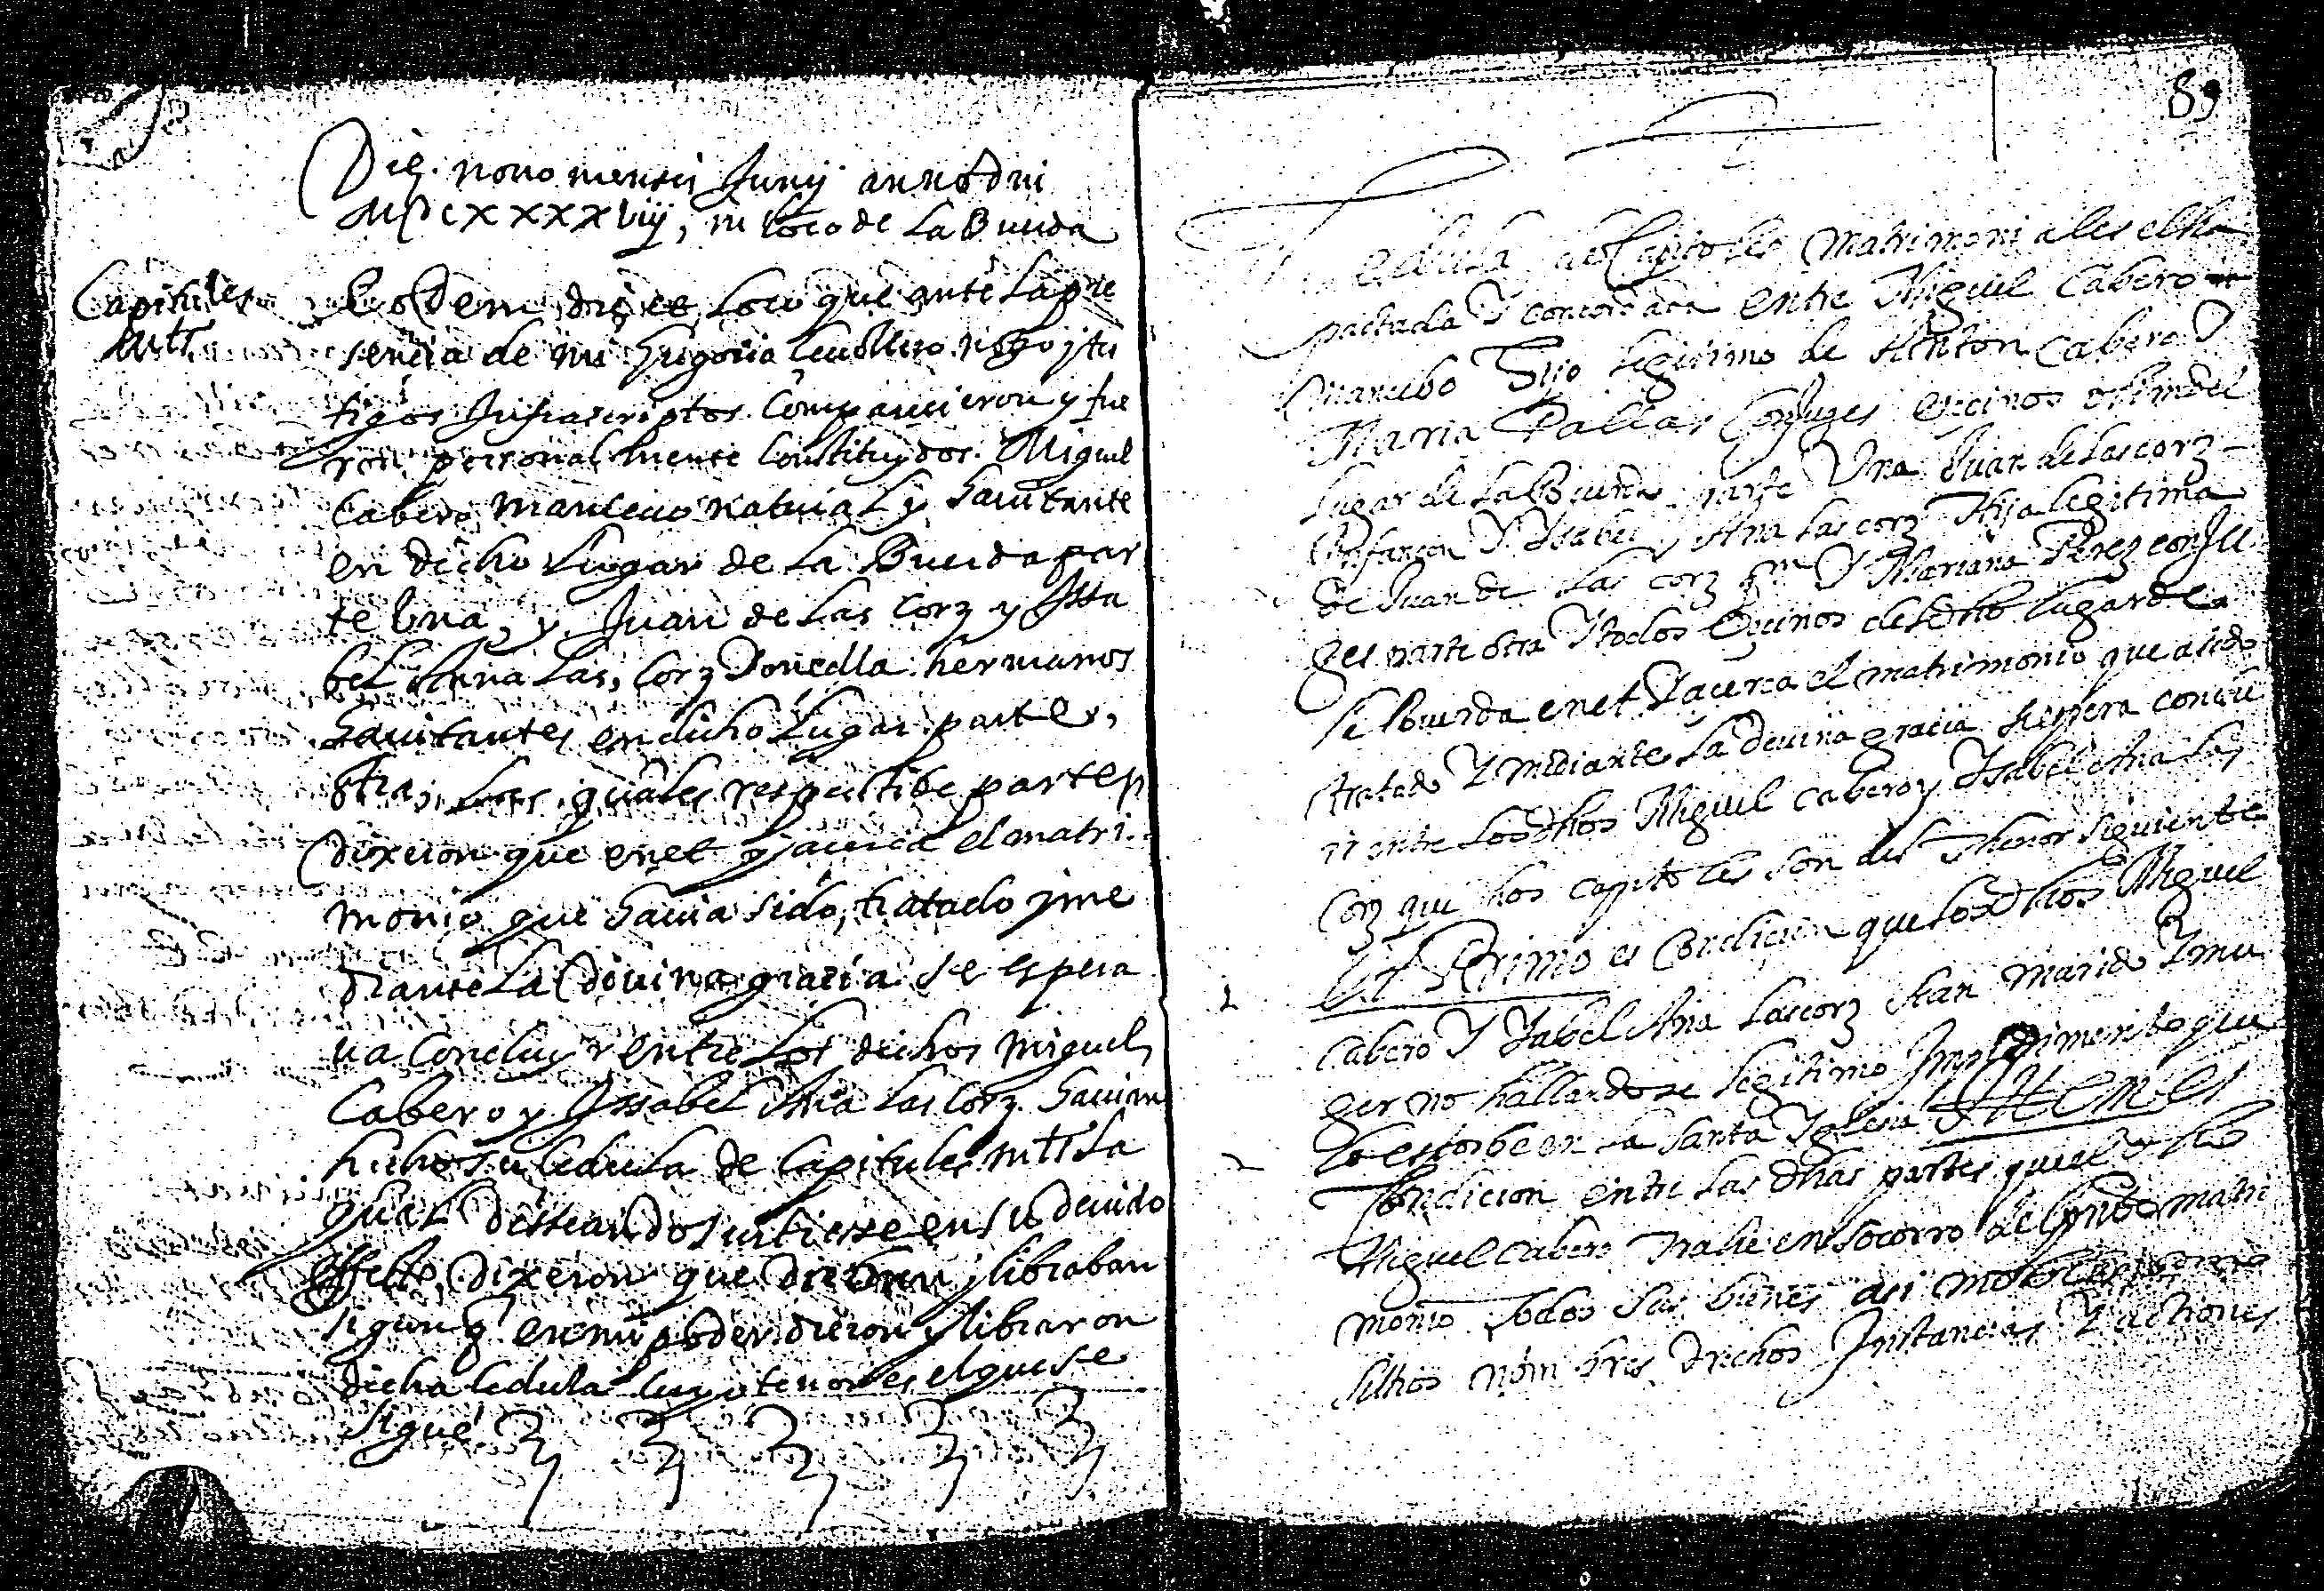 Die nono mensis Junij anno dni
MDCXXXXviij, in loco de La Buerda
Capitules
mtr.
Eodem die et loco que ante la pre
sencia de mi
tigos infrascriptos comparecieron y fue
ron personalmente constituydos Miguel
Cabero mancevo natural y havitante
en dicho lugar de La Buerda par
te vna, y Juan de Las Corz y Issa
bel Anna Las Corz Doncella hermanos
havitantes en dicho Lugar parte
otra; Los quales respectibe partes
dixeron que en et y acerca el matri
monio que havia sido tratado y me
diante La divina gracia se espera
va concluyr entre Los dichos Miguel
Cabero y Issabel Ana Las Corz havian
hecho su cedula de Capitules mtr. La
qual desseando surtiesse en su devido
effecto, dixeron que dieban y libraban
segun q en mi poder dieron y libraron
dicha cedula cuyo tenor es el que se
sigue
89
Cedula de Capitoles Matrimoniales
pactada Y concordada entre Miguel Cabero
Mancebo Hijo legitimo de Anton Cabero Y
Maria Pallas Conjuges vecinos del
lugar de La Buerda parte Una Juan de Lascorz
Infançon Y Ysabel Ana Lascorz Hija legitima
de Juan de Las corz qm Y Mariana Perez conju
ges parte otra Y todos vecinos del dho lugar de
La Buerda en et Y acerca el matrimonio que a sido
tratado Y mediante La devina gracia se espera conclu
ir entre Los dhos Miguel Cabero y Ysabel Ana Las
Corz que hos capitoles son del Thenor siguiente
1 Et Primo es condicion que los dhos Miguel
Cabero Y Ysabel Ana Lascorz sean marido Y mu
ger no hallandose legitimo Impedimento que
lo estorbe en la santa Yglesia Ittem es
2 Condicion entre Las dhas partes que el dho
Miguel Cabero Trahe en socorro del pnte matri
monio todos sus bienes asi mobles como
sittios nombres drechos Instancias Y actiones